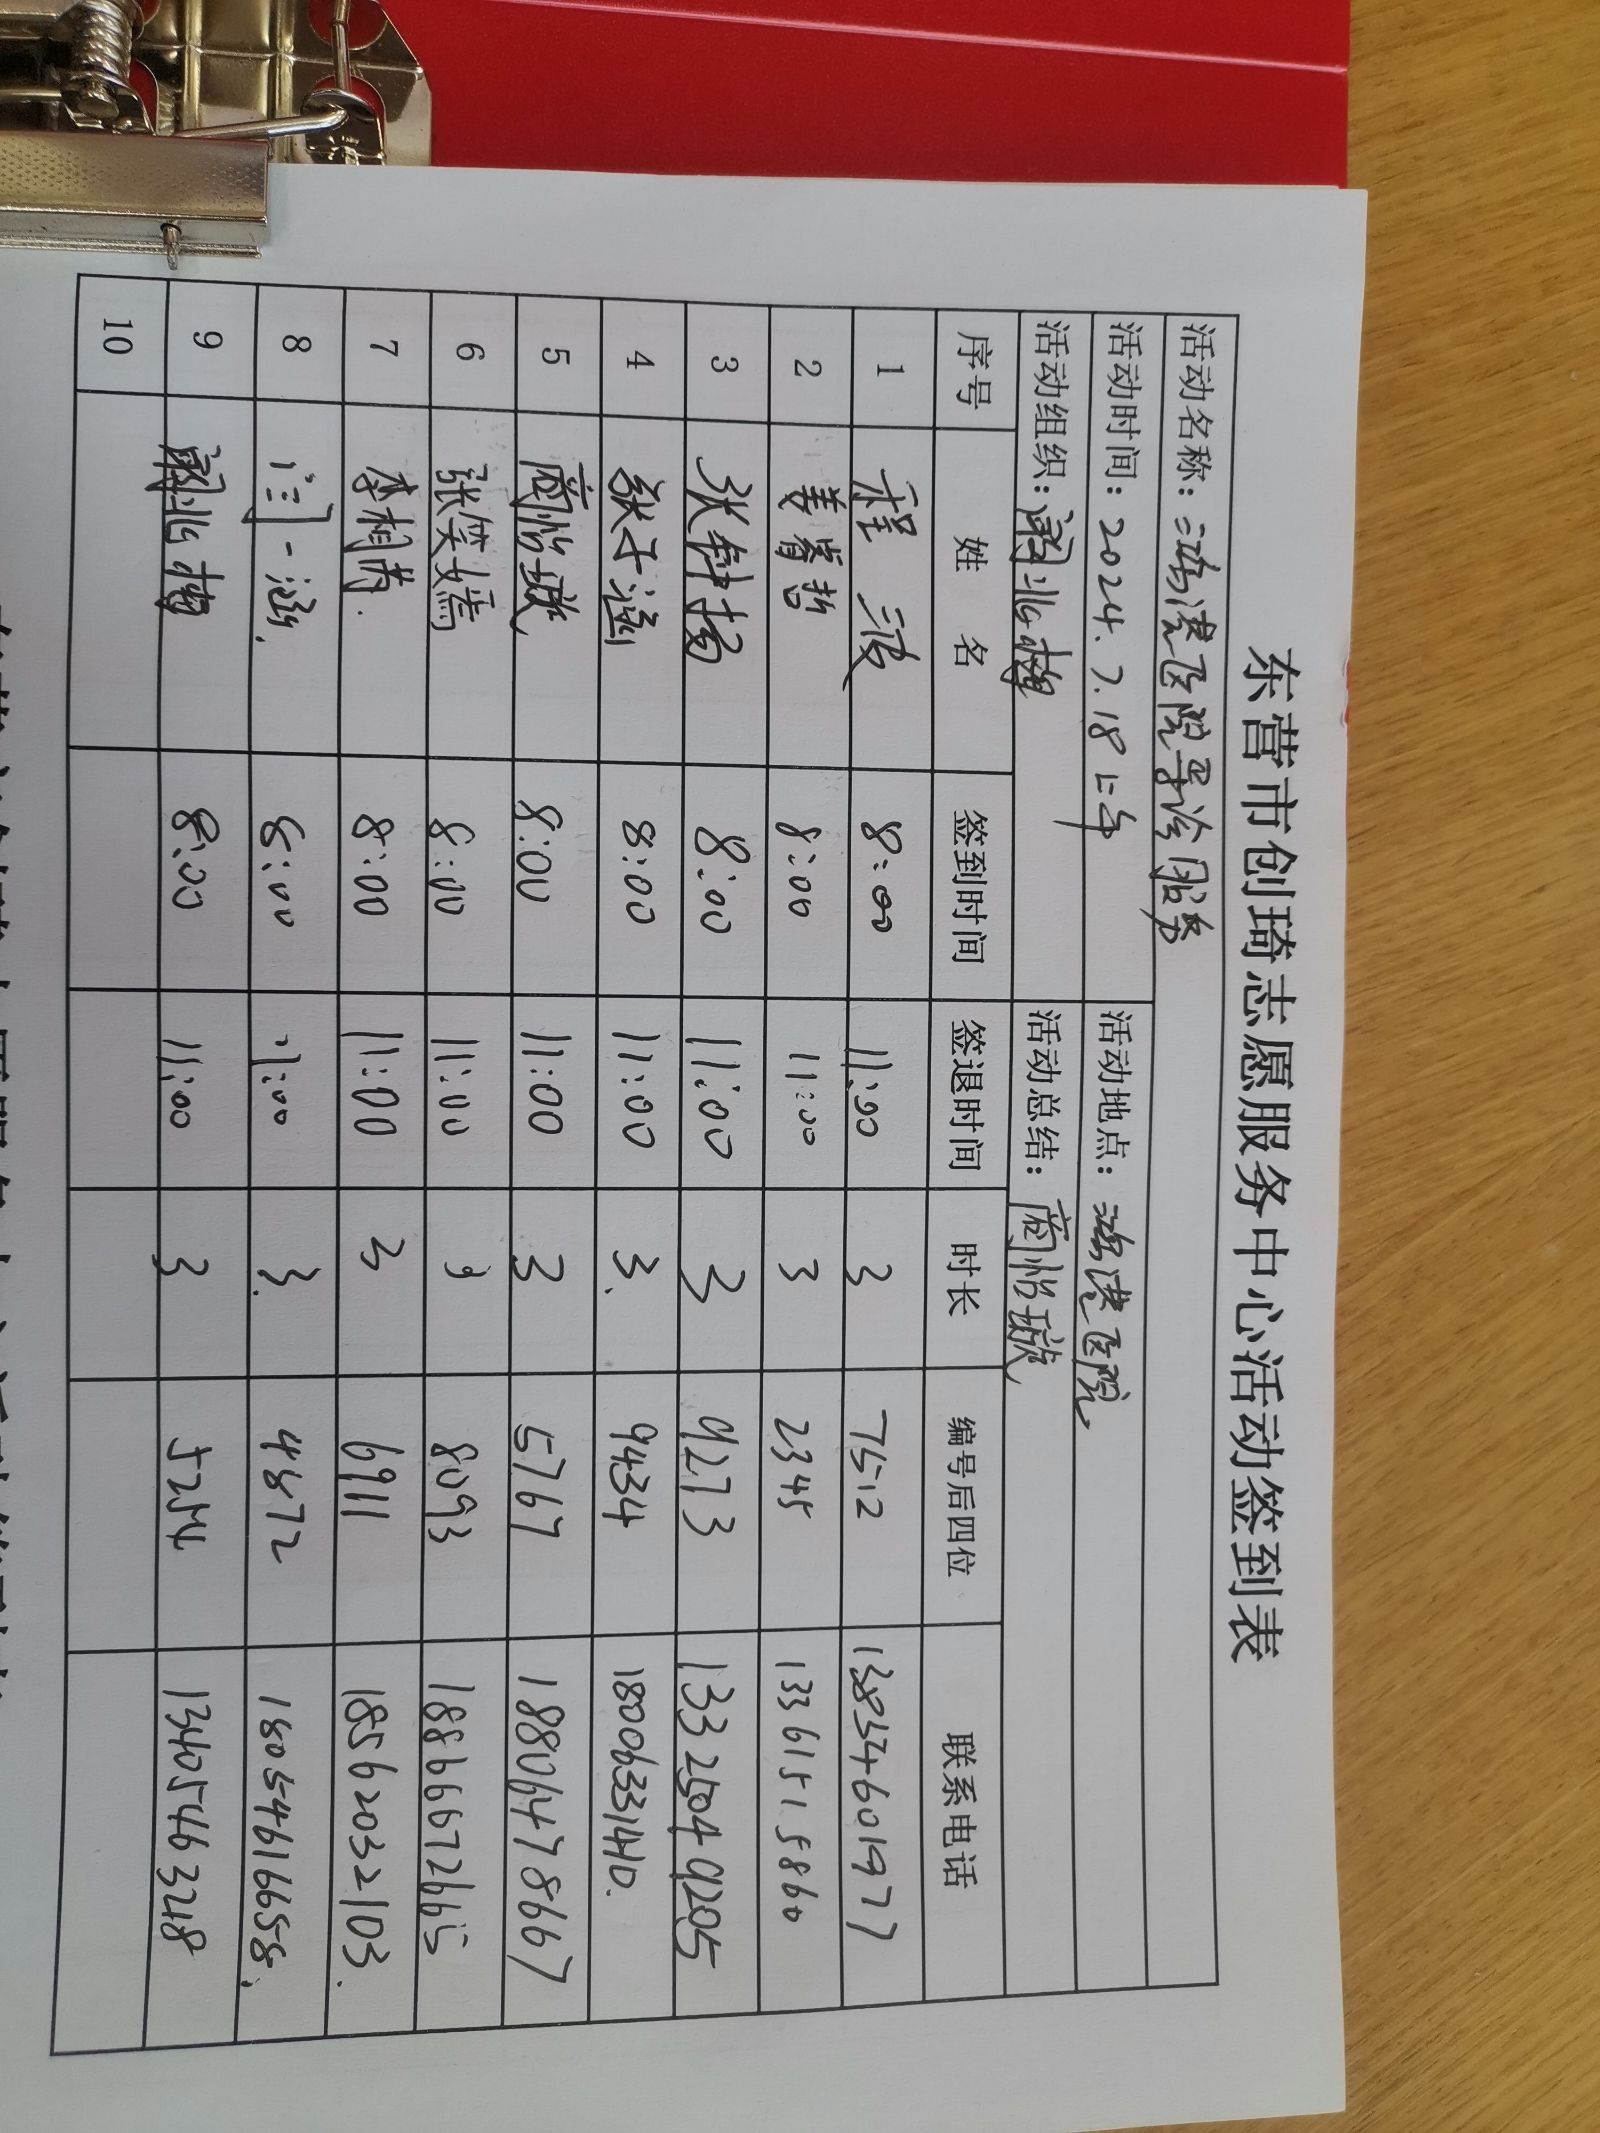 东营市创琦志愿服务中心活动签到表
活动名称：鸿港医院导诊服务
活动时间：2024.7.18上午 活动地点：鸿港医院
活动组织： 活动总结：商怡璇
序号 姓名 签到时间 签退时间 时长 编号后四位 联系电话
1 程波 8:00 11:00 3 7512 13854601977
2 姜睿哲 8:00 11:00 3 2345 13361515860
3 张钟扬 8:00 11:00 3 9273 13325049205
4 张子涵 8:00 11:00 3. 9434 18006331410.
5 商怡璇 8:00 11:00 3 5767 18806478667
6 张笑嫣 8:00 11:00 3 8093 18866672665
7 李相 8:00 11:00 3 6911 18562032103.
8 闫一涵. 8:00 11:00 3. 4872 18054616658.
9 8:00 11:00 3 5254 13405463248
10